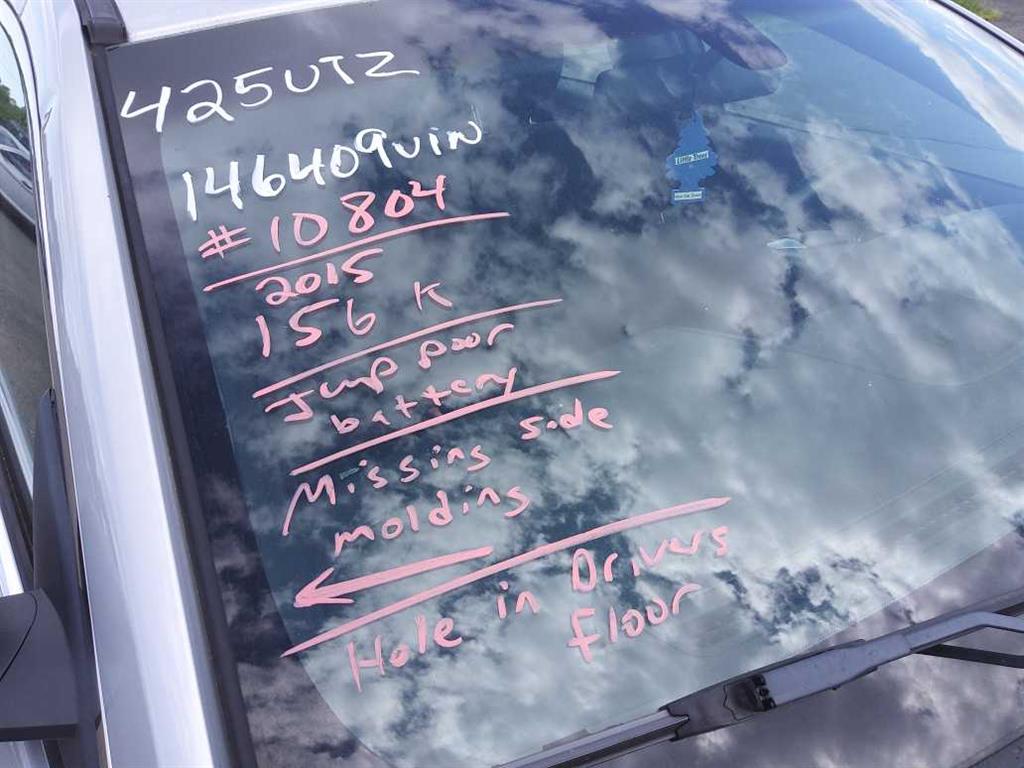 425UTZ
146409VIN
# 10804
2015
156 K
Jump poor
battery
Missing side
molding
Hole in Drivers
floor
Little Trees